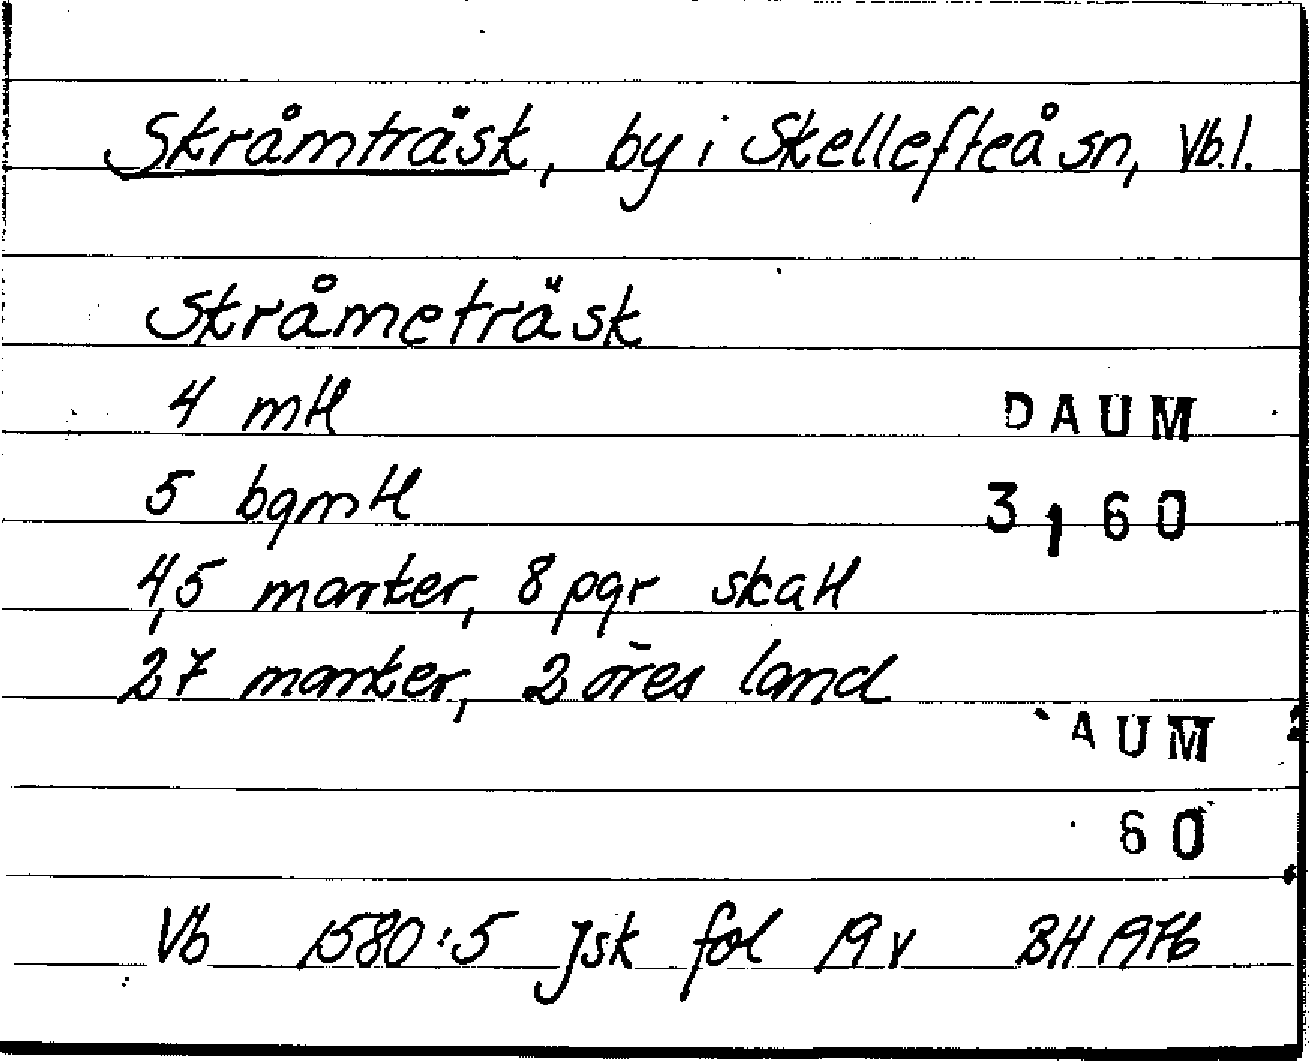 Skråmträsk, by i Skellefteå sn, Vb.l.
Skråmeträsk
4 mtl
DAUM
5 bgmtl
3,60
4,5 marker, 8 pgr skatt
27 marker, 2 öres land
AUM
60
Vb 1580:5 Jsk fol 19v BH 1976